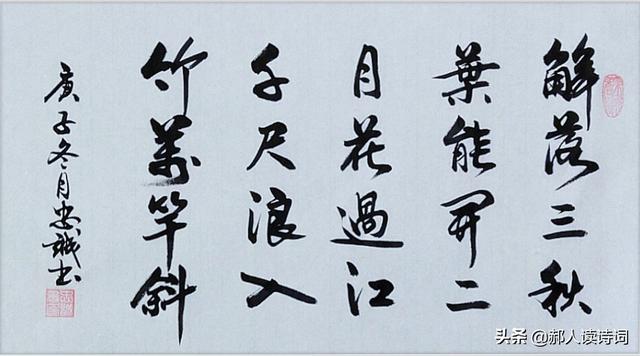 解落三秋
葉能開二
月花過江
千尺浪入
竹萬竿斜
庚子冬月忠誠书
头条 @郝人读诗词